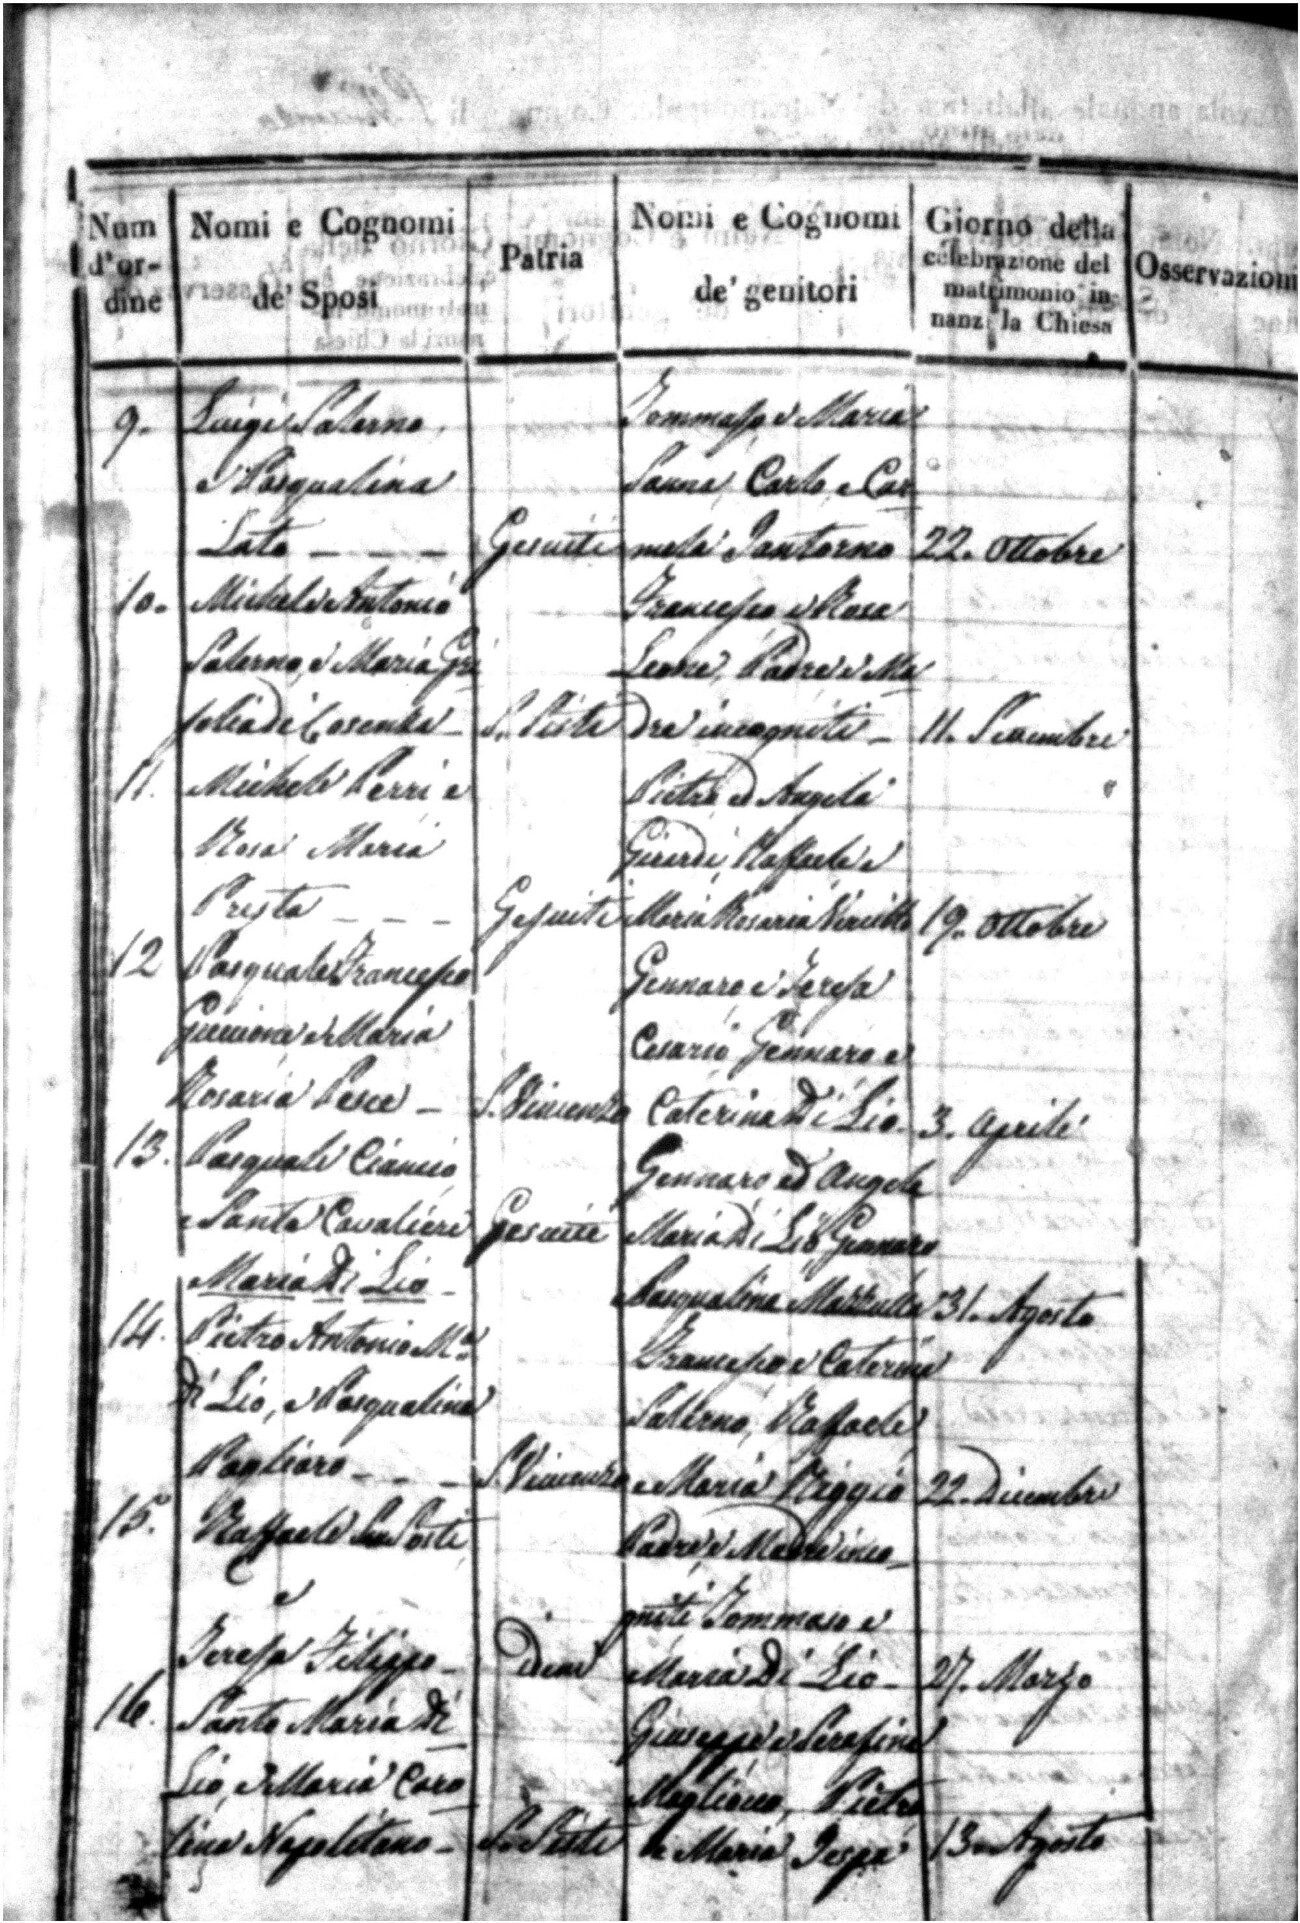 Num d'or- dine
Nomi e Cognomi de' Sposi
Patria
Nomi e Cognomi de' genitori
Giorno della celebrazione del matrimonio in- nanzi la Chiesa
Osservazioni
9. Luigi Salerno Tommaso e Maria
e Pasqualina Sauna, Carlo e Car
Lato - - - Gesuiti mela Pantorno 22. Ottobre
10. Michele Antonio Francesco e Rosa
Salerno, e Maria Gri Leone, Padre e Ma
di Cosenza - S. Sisti dre incogniti - 11. Settembre
11. Michele Perri e Pietro ed Angela
Rosa Maria Girardi, Raffaele e
Presta - - - Gesuiti Maria Rosaria Vircillo 19. Ottobre
12 Pasquale Francesco Gennaro e Teresa
Guccione e Maria Cesario, Gennaro e
Rosaria Pesce - S. Vincenzo Caterina Di Lio - 3. Aprile
13. Pasquale Ciancio Gennaro ed Angela
e Santa Cavalieri Gesuiti Maria Di Lio Gennaro
Maria Di Lio - e Pasqualina Mazzulla 31. Agosto
14. Pietro Antonio Mª Francesco e Caterina
Di Lio, e Pasqualina Salerno, Raffaele
Pagliaro - - - S. Vincenzo e Maria Reggio 22. Dicembre
15. Raffaele Posti Padre e Madre inco-
e gniti Tommaso e
Teresa Filippo - idem Maria Di Lio - 27. Marzo
16. Santo Maria Di Giuseppe e Serafina
Lio, e Maria Caro Magliocco, Pietro
lina Napolitano - S. Sisti e Maria 13. Agosto